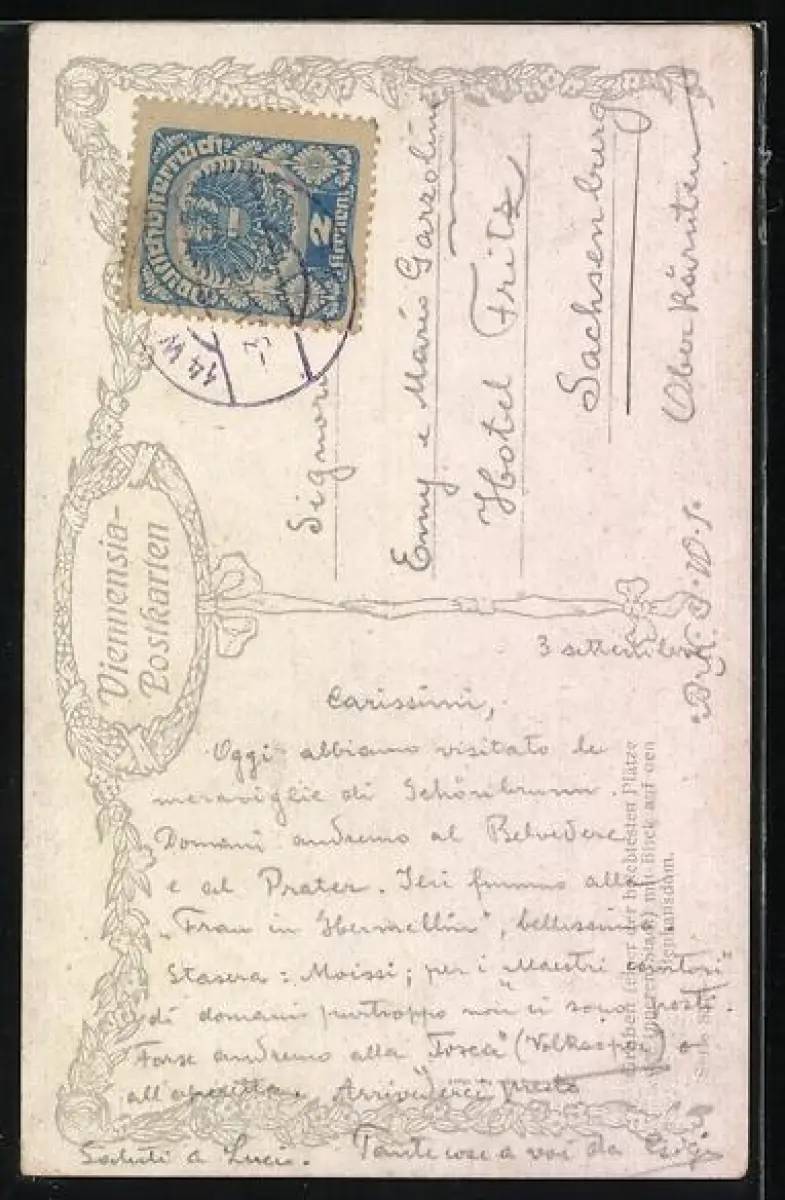 Deutschösterreich
2
Kronen
14 W
Viennensia-
Postkarten
Signori
Emmy e Mario Garzolini
Hotel Fritz
Sachsenburg
Ober Kärnten
3 settembre
Carissimi,
Oggi abbiamo visitato le
meraviglie di Schönbrunn.
Domani andremo al Belvedere
e al Prater. Ieri fummo alla
„Frau in Hermelin", bellissima.
Stasera: Moissi; per i „Maestri cantori"
di domani purtroppo non ci sono posti.
Forse andremo alla „Tosca" (Volksoper) o
all'operetta. Arrivederci presto
Saluti a Lucio. Tante cose a voi da
B.K.W.I.
Graben (einer der belebtesten Plätze
der inneren Stadt) mit Blick auf den
Stephansdom.
Serie